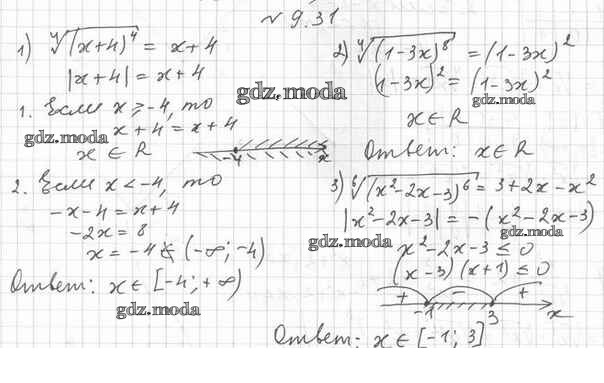 № 9.31
1) ∜(x+4)⁴ = x+4
|x+4| = x+4
1. Если x ≥ -4, то
x+4 = x+4
x ∈ R
-4 x
2. Если x < -4, то
-x-4 = x+4
-2x = 8
x = -4 ∉ (-∞; -4)
Ответ: x ∈ [-4; +∞)
2) ∜(1-3x)⁸ = (1-3x)²
(1-3x)² = (1-3x)²
x ∈ R
Ответ: x ∈ R
3) ⁶√(x²-2x-3)⁶ = 3+2x-x²
|x²-2x-3| = -(x²-2x-3)
x²-2x-3 ≤ 0
(x-3)(x+1) ≤ 0
+ - +
-1 3 x
Ответ: x ∈ [-1; 3]
gdz.moda
gdz.moda
gdz.moda
gdz.moda
gdz.moda
gdz.moda